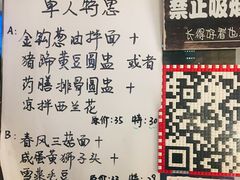 单人特惠
A: 金钩葱油拌面 +
猪蹄黄豆圆盅 或者
药膳排骨圆盅 +
凉拌西兰花
原价:35 特:30
B: 春风三菇面 +
咸蛋黄狮子头 +
雪菜毛豆
禁止吸
长得好看也